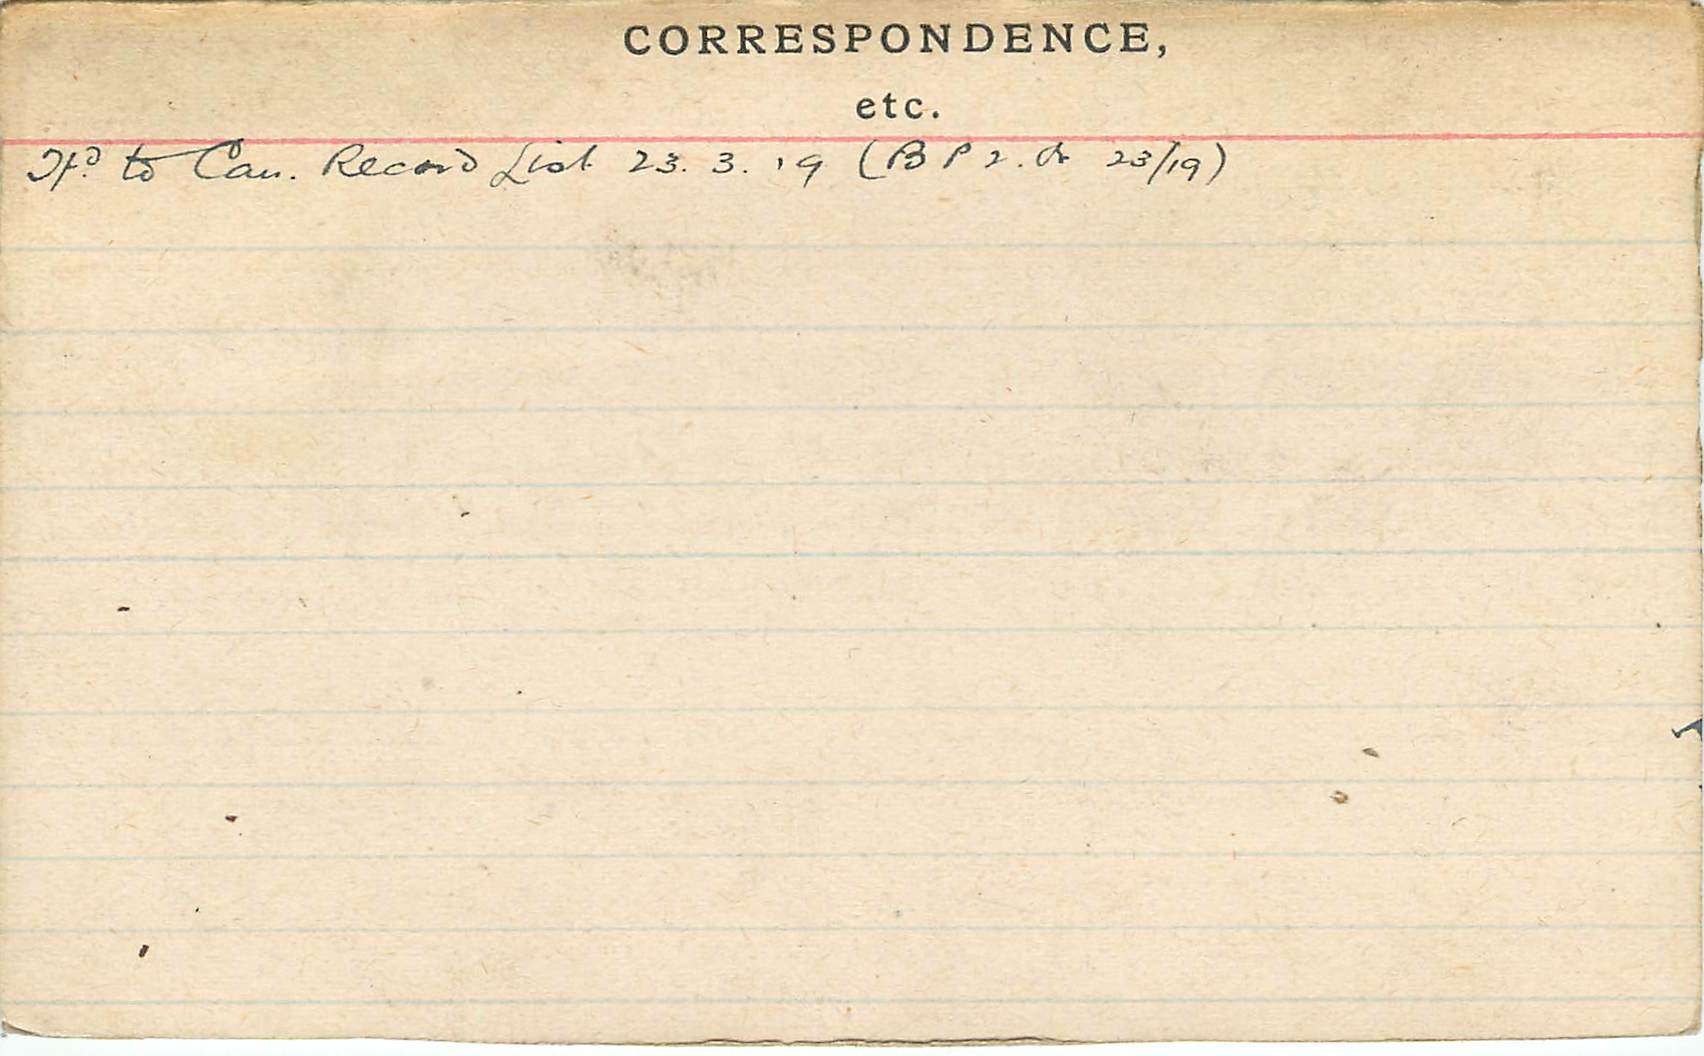 CORRESPONDENCE,
etc.
to Can. Record List 23. 3. '19 (B P 2. 23/19)